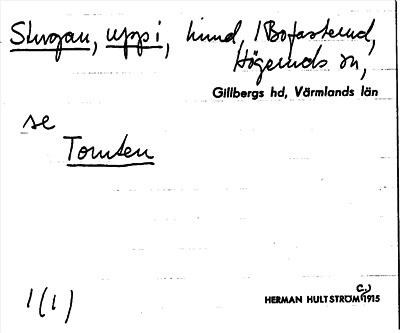 Skogan, uppi, hmd, /Bofasterud,
Högeruds sn,
Gillbergs hd, Värmlands län
se
Tomten
1(1)
HERMAN HULTSTRÖM c.) 1915